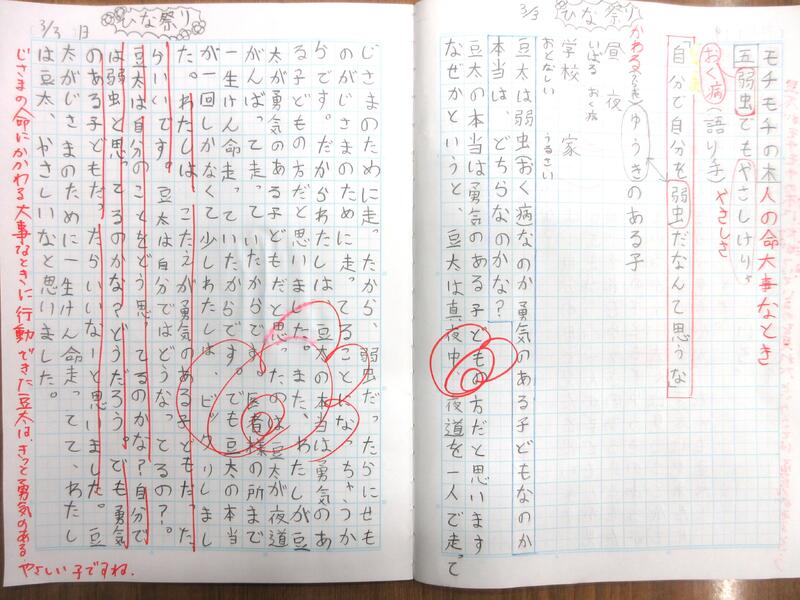 3/3 ひな祭り
モチモチの木 人の命大事なとき
五 弱虫でもやさしけりゃ
おく病(語り手) やさしさ
「自分で自分を弱虫だなんて思うな」
ゆうきのある子
かわる
昼 夜
いばる おく病
学校 家
おとなしい うるさい
豆太は弱虫(おく病なのか勇気のある子どもなのか
本当は、どちらなのかな?
豆太の本当は勇気のある子どもの方だと思います
なぜかというと、豆太は真夜中夜道を一人で走って
3/3 日 ひな祭り
じさまのために走ったから、弱虫だったらにせも
のがじさまのために走ってることになっちゃうか
らです。だからわたしは、豆太の本当は勇気のあ
る子どもの方だと思いました。また、わたしが豆
太が勇気のある子どもだと思ったのは豆太が夜道
がんばって走っていたからです。医者様の所まで
一生けん命走っていたからです。でも豆太の本当
が一回しかなくて少しわたしはビックリしまし
た。わたしは、こたえが勇気のある子どもだった
らいいです。豆太は自分ではどうなってるの?。
豆太は自分のことをどう思ってるのかな?自分で
は弱虫と思ってるのかな?どうだろう。でも勇気
のある子どもだったらいいなーと思いました。豆
太がじさまのために一生けん命走ってて、わたし
は豆太、やさしいなと思いました。
じさまの命にかかわる大事なときに行動できた豆太は、きっと勇気のある
やさしい子ですね.